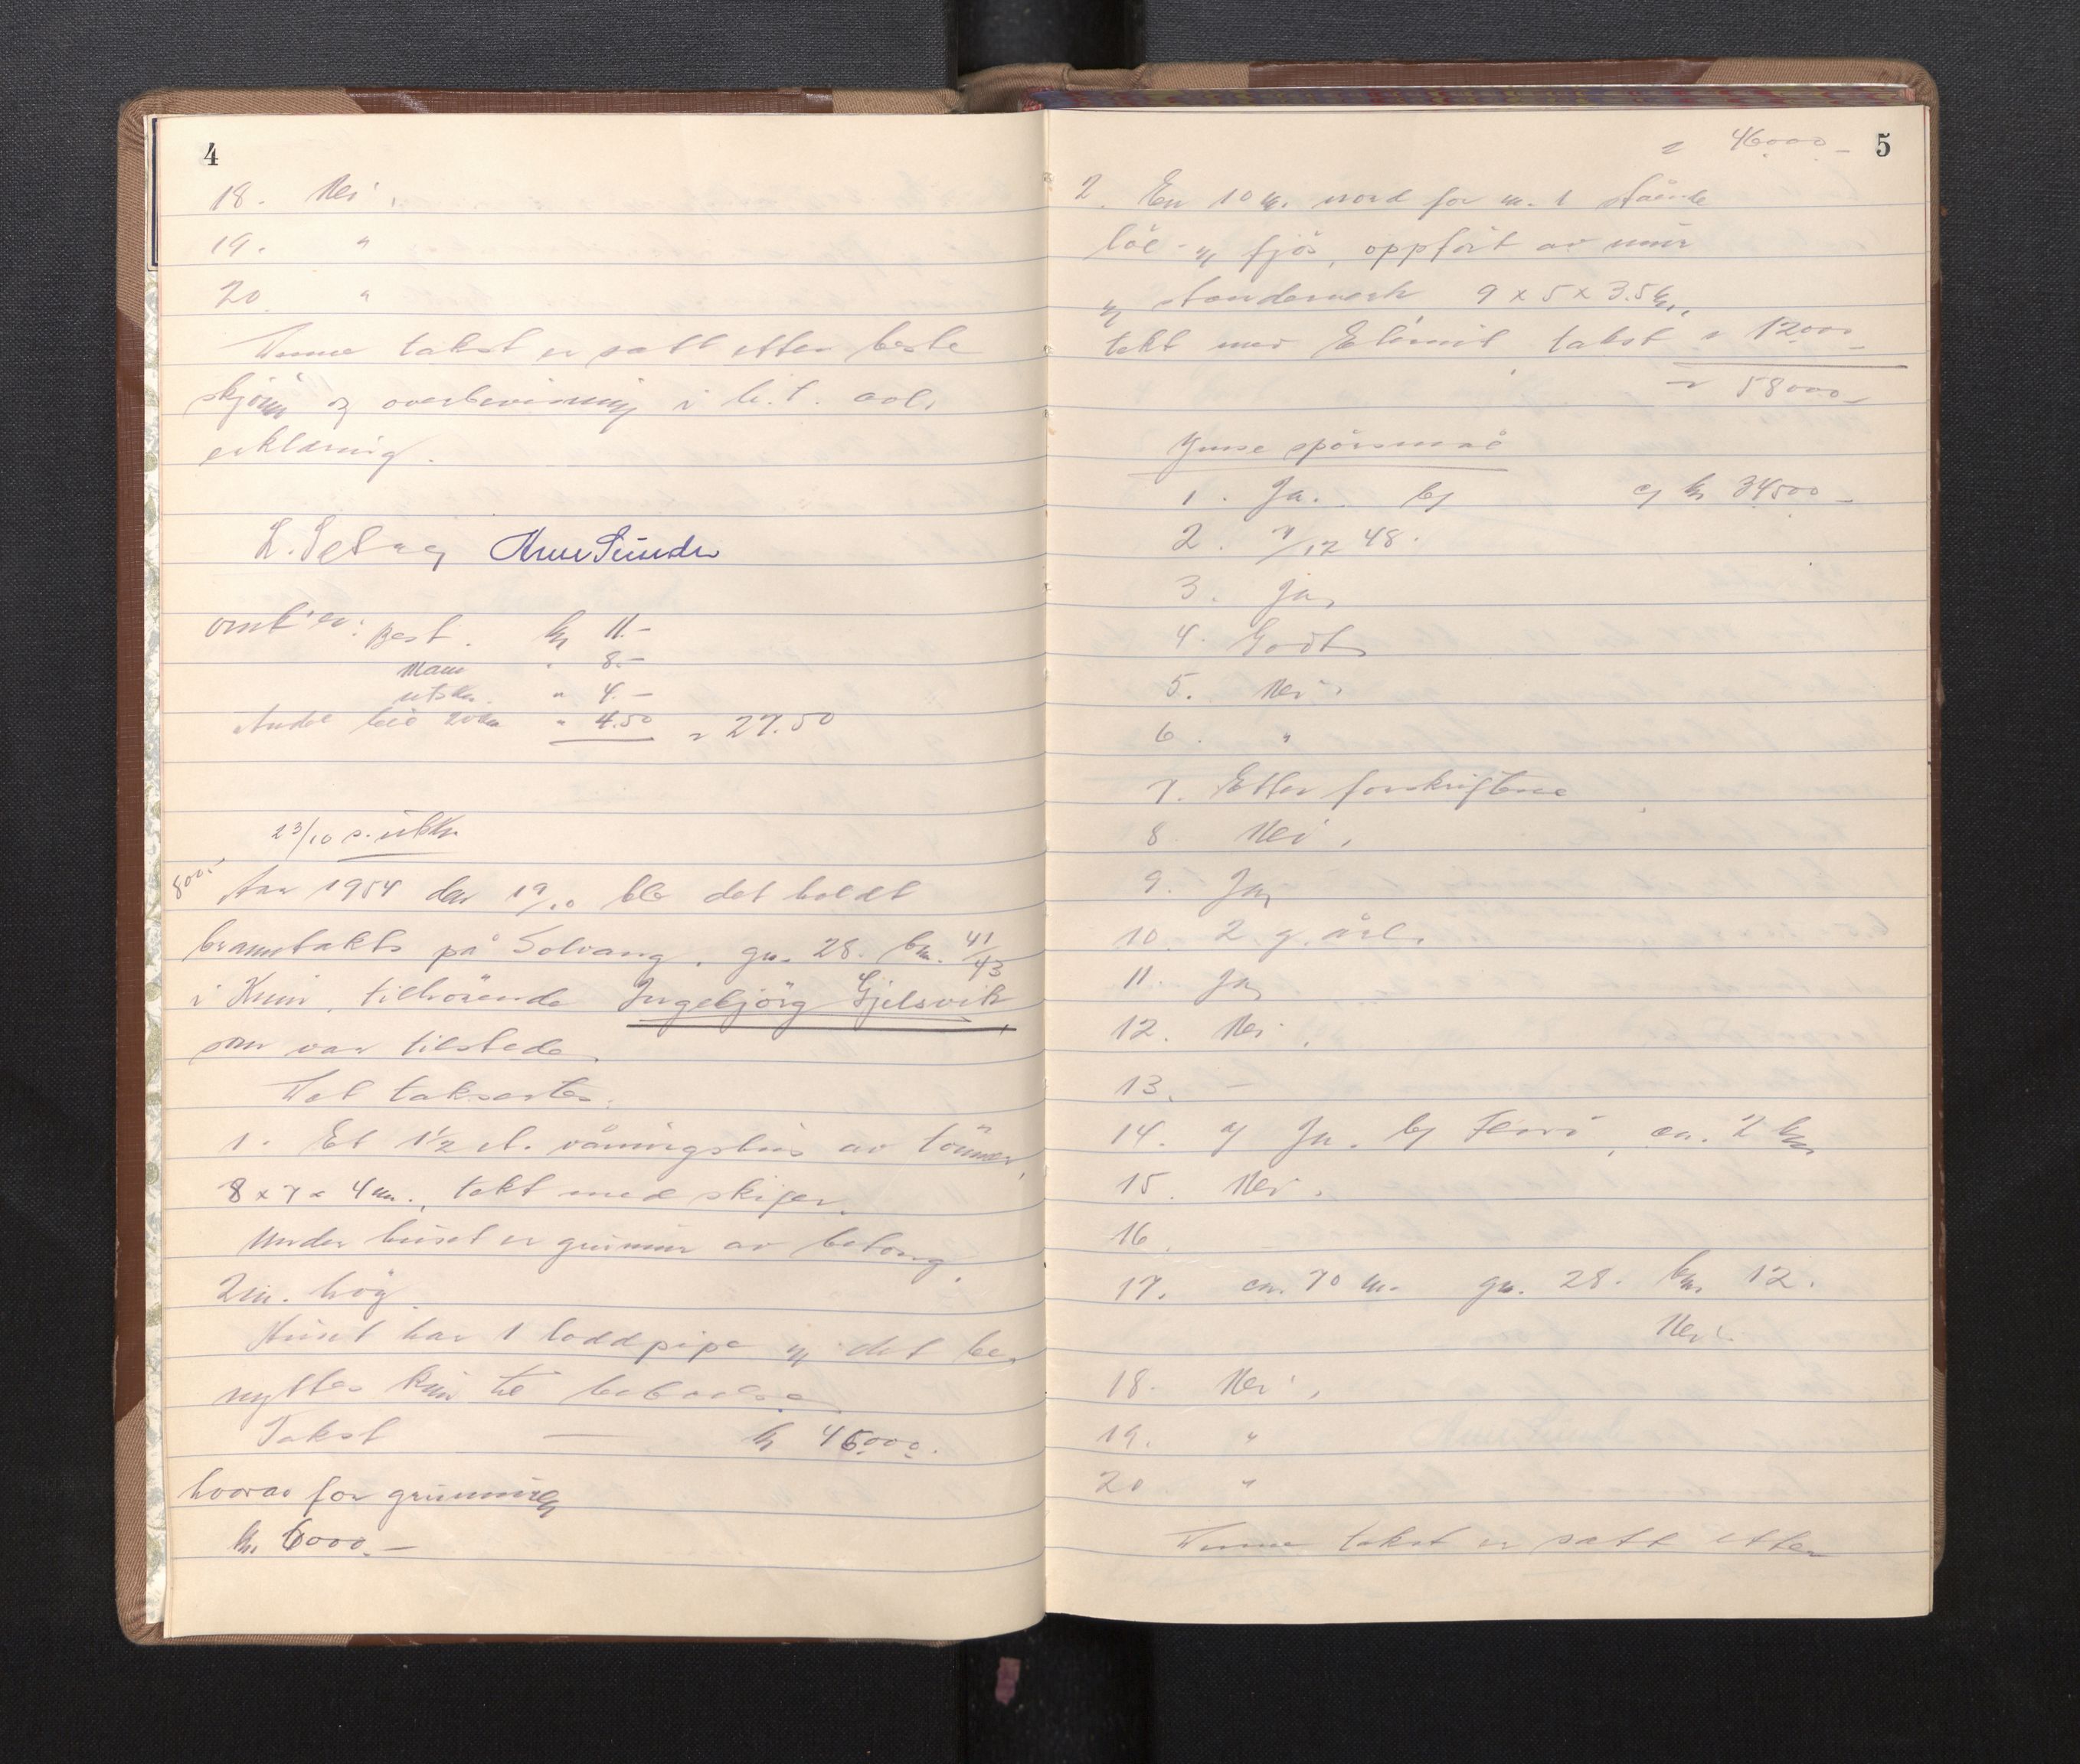 4
18. Nei.
19. "
20 "
Denne takst er satt etter beste
skjönn og overbevisning i h.t. avl.
erklæring.
L. Selvåg Arne Sunde
omk'er: Best. kr 11.-
Mann " 8.-
utskr. " 4.-
Andel leie " 4.50 = 27.50
23/10 s. utskr.
800.-
Aar 1954 den 19/10 ble det holdt
branntakts på Solvang, gn. 28. bn. 41/43
i Kinn, tilhörende Ingebjörg Gjelsvik,
som var tilstede.
Det takseretes:
1. Et 1½ et. våningshus av tömmer,
8 x 7 x 4 m., tekt med skifer.
Under huset er grunmur av betong,
2 m. hög
Huset har 1 loddpipe og det be-
nyttes kun til beboelse
Takst — kr 46000.
hvorav for grunnmuren
kr. 6000.-
5
= 46000.-
2. En 10 m. nord for nr. 1 stående
löe- og fjös, oppfört av mur
og standerverk 9 x 5 x 3.5 m.,
tekt med Eternit takst " 12000.-
= 58000.-
Ymse spörsmål
1. Ja. b) c) kr 34500.-
2. 7/12 48.
3. Ja,
4. Godt,
5. Nei.
6. "
7. Etter forskriftene
8 Nei.
9. Ja,
10. 2 g. årl.
11. Ja,
12. Nei.
13. -
14. a) Ja. b) Florö, ca. 2 km
15. Nei.
16.
17. ca. 70 m. gn. 28. bn. 12.
Nei.
18. Nei.
19. "
20 "
Denne takst er satt etter